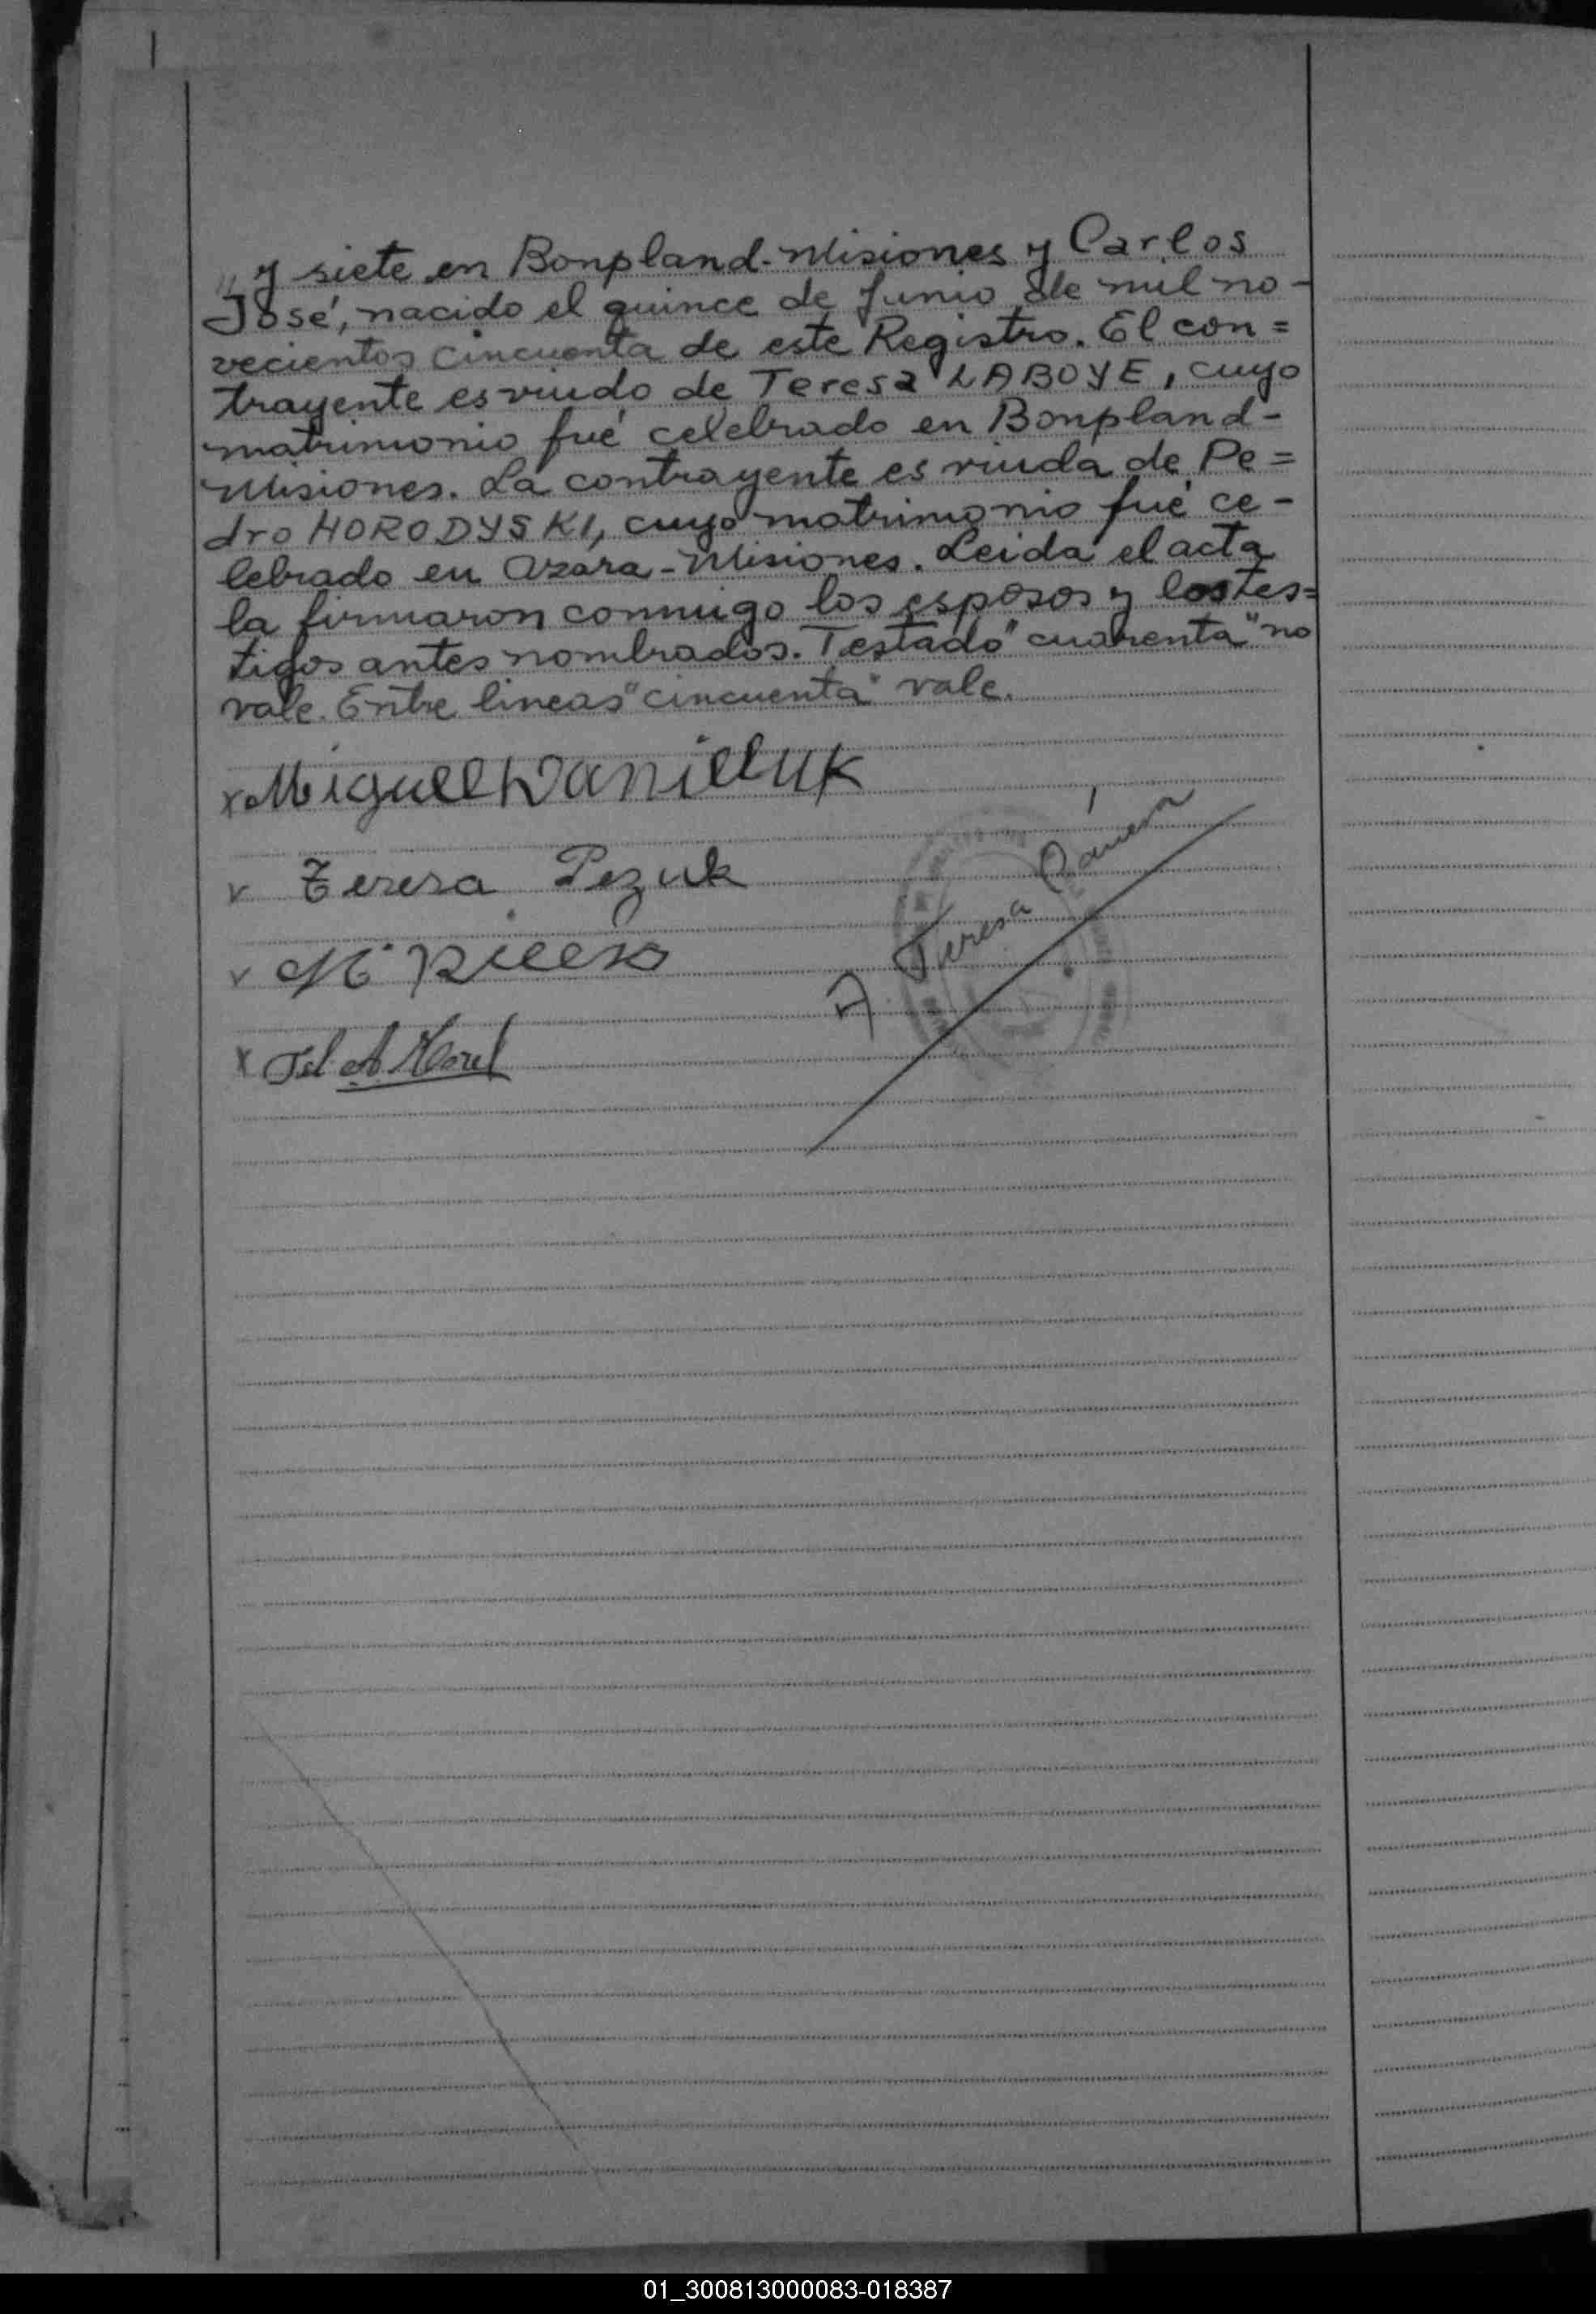 " y siete en Bonpland-Misiones y Carlos
José, nacido el quince de Junio de mil no-
vecientos cincuenta de este Registro. El con=
trayente es viudo de Teresa LABOYE, cuyo
matrimonio fué celebrado en Bonpland-
Misiones. La contrayente es viuda de Pe=
dro HORODYSKI, cuyo matrimonio fué ce-
lebrado en Azara-Misiones. Leida el acta
la firmaron conmigo los esposos y los tes=
tigos antes nombrados. Testado "cuarenta" no
vale. Entre lineas "cincuenta" vale.
x Miguel Daniluk
v Teresa Pezuk
A. Teresa
01_300813000083-018387